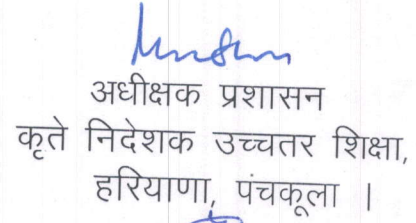 अधीक्षक प्रशासन
कृते निदेशक उच्चतर शिक्षा,
हरियाणा, पंचकूला ।